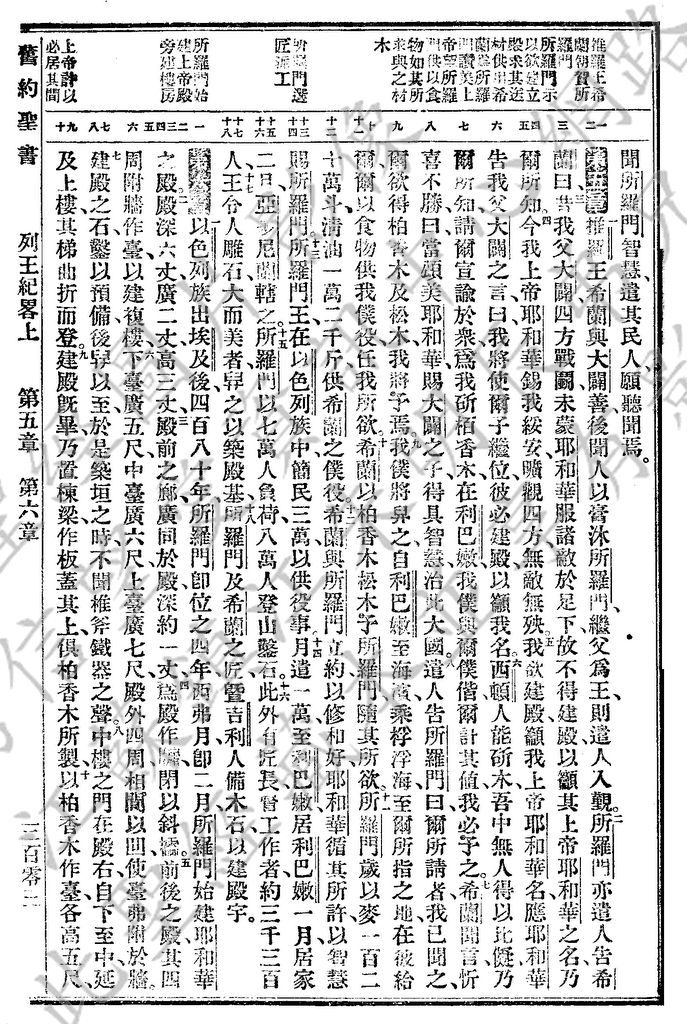 聞所羅門智慧遣其民人願聽聞焉。
第五章 推羅王希蘭與大闢善後聞人以膏沐所羅門繼父爲王則遣人入覲所羅門亦遣人告希
蘭曰吾我父大闢四方戰鬭未蒙耶和華服諸敵於足下故不得建殿以籲其上帝耶和華之名乃
爾所知今我上帝耶和華錫我綏安曠觀四方無敵無殃我欲建殿籲我上帝耶和華名應耶和華
告我父大闢之言曰我將使爾子繼位彼必建殿以籲我名西頓人能斫木吾中無人得以比儗乃
爾所知請爾宣諭於衆爲我斫栢香木在利巴嫩我僕與爾僕偕爾計其値我必予之希蘭聞言忻
喜不勝曰當頌美耶和華賜大闢之子得具智慧治此大國遣人告所羅門曰爾所請者我已聞之
爾欲得栢香木及松木我將予焉我僕將舁之自利巴嫩至海濱乘桴浮海至爾所指之地在彼給
爾爾以食物供我僕役任我所欲希蘭以柏香木松木予所羅門隨其所欲所羅門歲以麥一百二
十萬斗清油一萬二千斤供希蘭之僕役希蘭與所羅門立約以修和好耶和華循其所許以智慧
賜所羅門所羅門王在以色列族中簡民三萬以供役事月遣一萬至利巴嫩居利巴嫩一月居家
二月亞多尼蘭轄之所羅門以七萬人負荷八萬人登山鑿石此外有匠長督工作者約三千三百
人王令人雕石大而美者舁之以築殿基所羅門及希蘭之匠暨吉利人備木石以建殿宇。
第六章 以色列族出埃及後四百八十年所羅門卽位之四年西弗月卽二月所羅門始建耶和華
之殿殿深六丈廣二丈高三丈殿前之廊廣同於殿深約一丈爲殿作牖閉以斜櫺前後之殿其四
周附牆作臺以建複樓下臺廣五尺中臺廣六尺上臺廣七尺殿外四周相間以凹使臺弗附於牆
建殿之石鑿以預備後舁以至於是築垣之時不聞椎斧鐵器之聲中樓之門在殿右自下至中延
及上樓其梯曲折而登建殿旣畢乃置棟梁作板蓋其上俱柏香木所製以柏香木作臺各高五尺
推羅王希
蘭朝賀所
羅門
所羅門示
以欲建立
殿求其送
材供出希
蘭允所羅
門讚美上
帝望所羅
門供以食
物如其所
求與之材
木
所羅門選
匠派工
所羅門始
建上帝殿
旁建樓房
上帝許以
必居其間
舊約聖書 列王紀畧上 第五章 第六章 三百零二